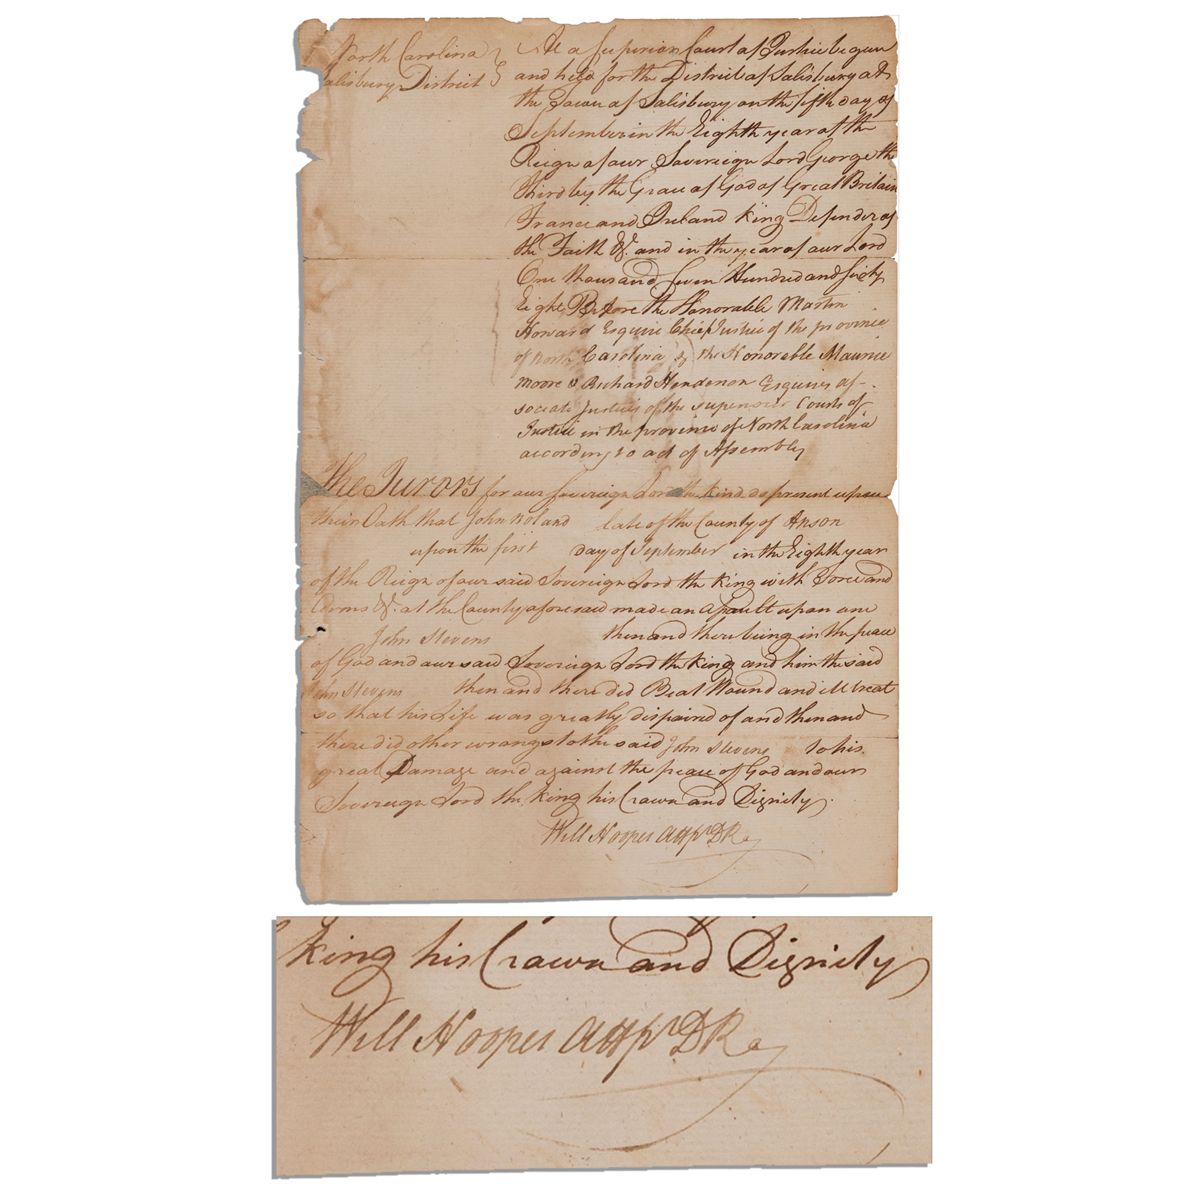 North Carolina
Salisbury District
At a Superior Court of Justice began
and held for the District of Salisbury at
the Town of Salisbury on the fifth day of
September in the Eighth year of the
Reign of our Sovereign Lord George the
third by the Grace of God of Great Britain
France and Ireland King Defender of
the Faith &c. and in the year of our Lord
One thousand Seven Hundred and Sixty
Eight Before the Honorable Martin
Howard Esquire Chief Justice of the province
of North Carolina & the Honorable Maurice
Moore & Richard Henderson Esquires as-
sociate Justices of the superior Courts of
Justice in the province of North Carolina
according to act of Assembly
The Jurors for our Sovereign Lord the King do present upon
their Oath that John Boland late of the County of Anson
upon the first day of September in the Eighth year
of the Reign of our said Sovereign Lord the King with Force and
Arms &c. at the County aforesaid made an Assault upon one
John Stevens then and there being in the peace
of God and our said Sovereign Lord the King and him the said
John Stevens then and there did Beat Wound and ill treat
so that his Life was greatly dispaired of and then and
there did other wrongs to the said John Stevens to his
great Damage and against the peace of God and our
Sovereign Lord the King his Crown and Dignity.
Will Hooper Att pr D R
King his Crown and Dignity
Will Hooper Att pr D R